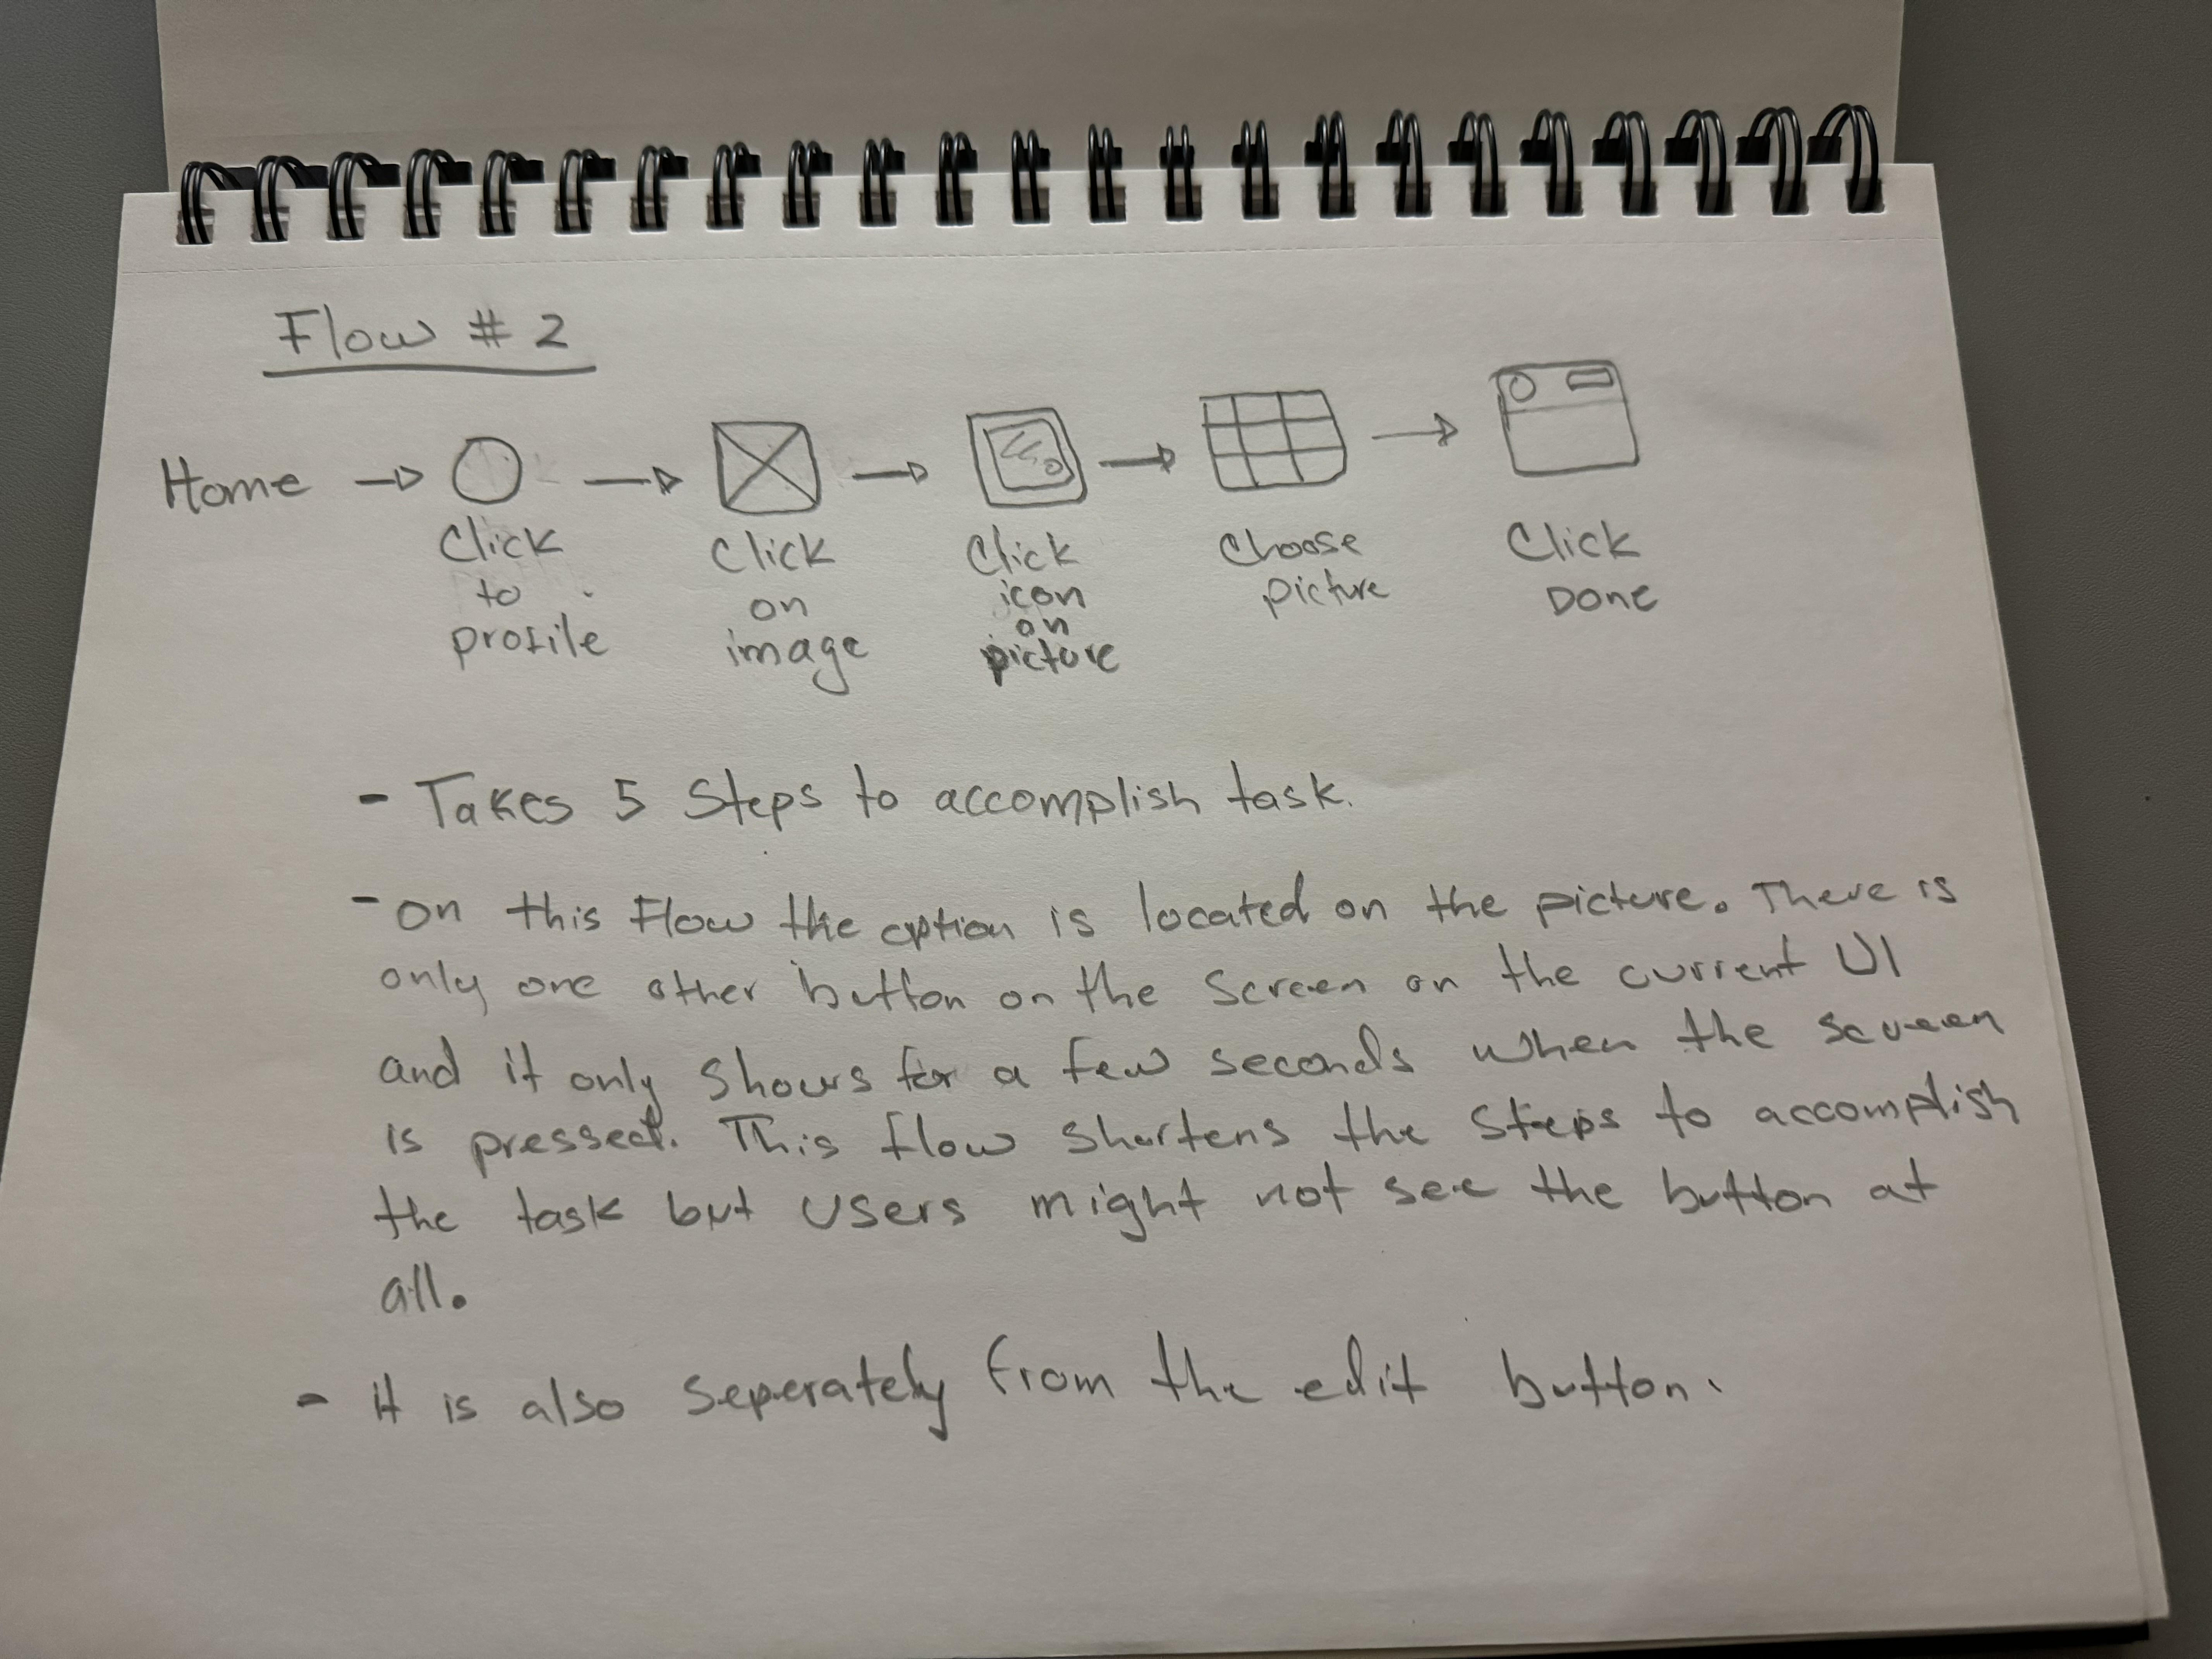 Flow # 2
Home
Click to profile
Click on image
Click icon on picture
Choose picture
Click Done
- Takes 5 Steps to accomplish task.
- on this Flow the option is located on the picture. There is
only one other button on the screen on the current UI
and it only shows for a few seconds when the screen
is pressed. This flow shortens the steps to accomplish
the task but users might not see the button at
all.
- it is also seperately from the edit button.